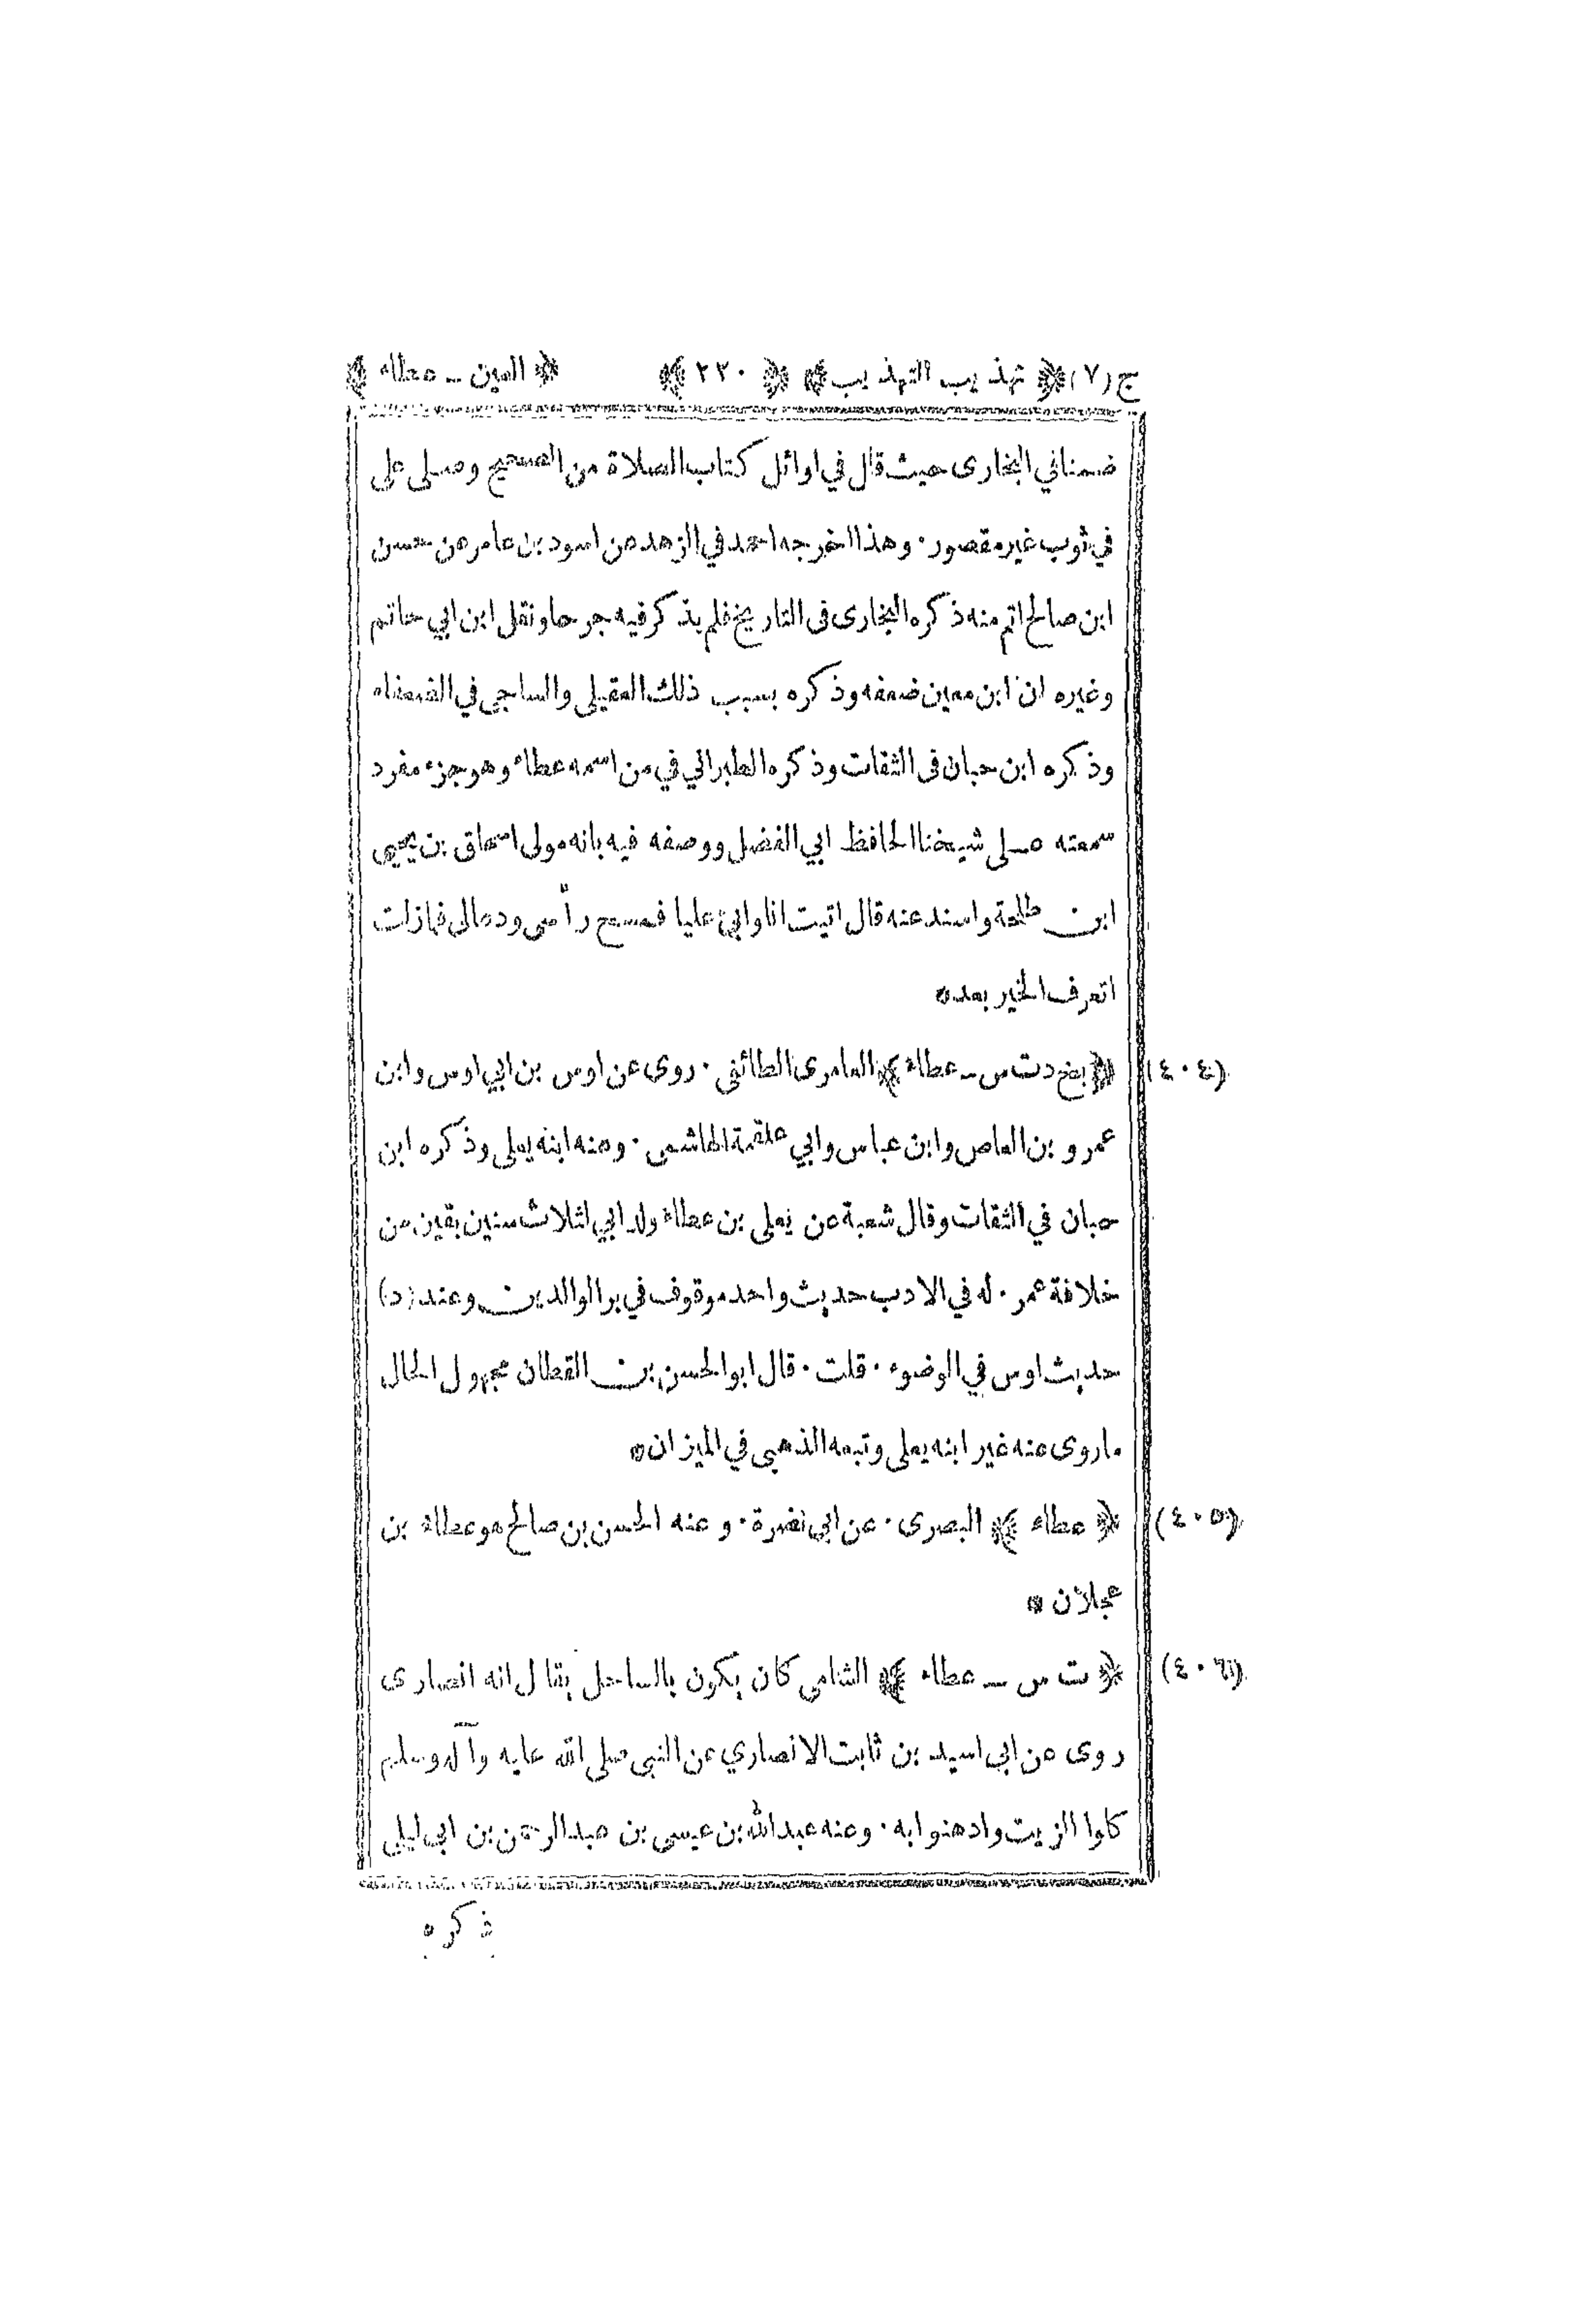 ج (٧) ﴿ تهذيب التهذيب ﴾ ﴿ ٢٢٠ ﴾ ﴿ العين - عطاء ﴾
ضمنا في البخارى حيث قال في اوائل كتاب الصلاة من الصحيح وصلى على
في ثوب غير مقصور · وهذا اخرجه احمد في الزهد عن اسود بن عامر عن حسن
ابن صالح اتم منه ذكره البخارى فى التاريخ فلم يذكر فيه جرحا ونقل ابن ابي حاتم
وغيره ان ابن معين ضعفه وذكره بسبب ذلك العقيلى والساجى في الضعفاء
وذكره ابن حبان فى الثقات وذكره الطبراني في من اسمه عطاء وهو جزء مفرد
سمعته على شيخنا الحافظ ابي الفضل ووصفه فيه بانه مولى اسحاق بن يحيى
ابن طلحة واسند عنه قال اتيت انا وابي عليا فمسح رأسى ودعالى فمازلت
اتعرف الخير بعده
(٤٠٤) ﴿ بخ د ت س - عطاء ﴾ العامرى الطائفى · روى عن اوس بن ابي اوس وابن
عمرو بن العاص وابن عباس وابي علقمة الهاشمى · وعنه ابنه يعلى وذكره ابن
حبان في الثقات وقال شعبة عن يعلى بن عطاء ولد ابي لثلاث سنين بقين من
خلافة عمر · له في الادب حديث واحد موقوف في بر الوالدين وعند (د)
حديث اوس في الوضوء · قلت · قال ابو الحسن بن القطان مجهول الحال
ما روى عنه غير ابنه يعلى وتبعه الذهبى في الميزان
(٤٠٥) ﴿ عطاء ﴾ البصرى · عن ابي نضرة · وعنه الحسن بن صالح هو عطاء بن
عجلان
(٤٠٦) ﴿ ت س - عطاء ﴾ الشامى كان يكون بالساحل يقال انه انصارى
روى عن ابي اسيد بن ثابت الانصاري عن النبى صلى الله عليه وآله وسلم
كلوا الزيت وادهنوا به · وعنه عبد الله بن عيسى بن عبد الرحمن بن ابي ليلى
ذكره